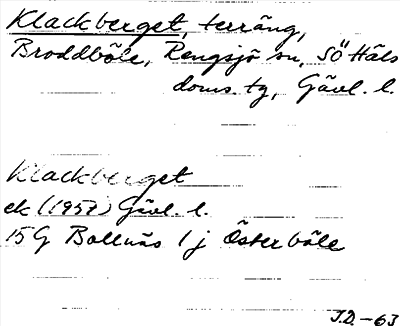 Klackberget, terräng,
Broddböle, Rengsjö sn, SÖ Häls
doms. tg, Gävl. l.
Klackberget
ek (1957) Gävl. l.
15 G Bollnäs 1 j Österböle
J.D. -63